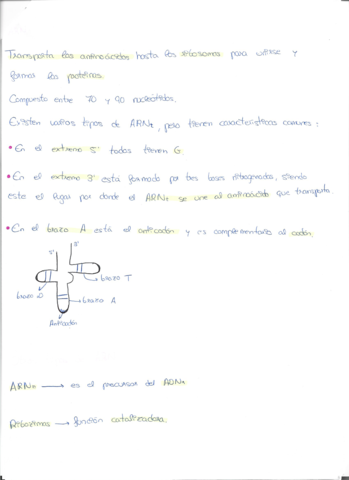 Transporta los aminoácidos hasta los ribosomas para unirse y
formar las proteínas.
Compuesto entre 70 y 90 nucleótidos.
Existen varios tipos de ARNt, pero tienen características comunes:
• En el extremo 5' todos tienen G.
• En el extremo 3' está formado por tres bases nitrogenadas, siendo
este el lugar por donde el ARNt se une al aminoácido que transporta.
• En el brazo A está el anticodón y es complementario al codón.
5'
3'
brazo T
brazo D
brazo A
Anticodón
ARNn → es el precursor del ARNr
Ribozimas → función catalizadora.